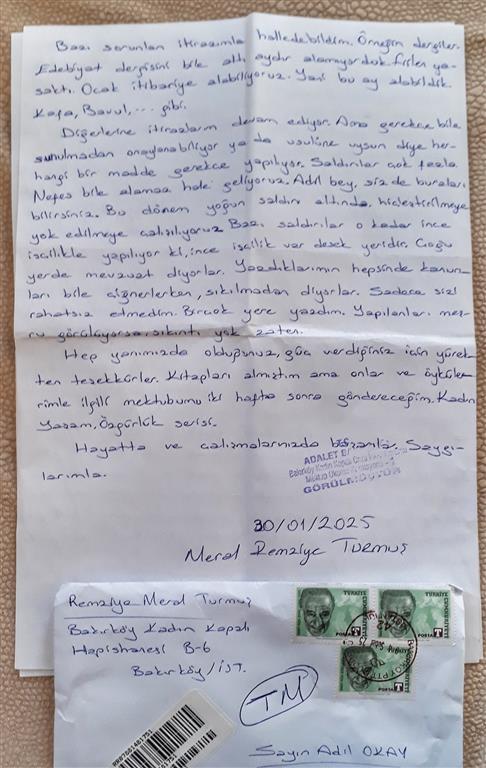 Bazı sorunları itirazımla halledebildim. Örneğin dergiler.
Edebiyat dergisini bile altı aydır alamıyorduk fiilen ya-
saktı. Ocak itibariye alabiliyoruz. Yani bu ay alabildik
Kafa, Bavul, ... gibi.
Diğerlerine itirazlarım devam ediyor. Ama gerekçe bile
sunulmadan onaylanabiliyor ya da usulüne uysun diye her-
hangi bir madde gerekçe yapılıyor. Saldırılar çok fazla
Nefes bile alamaz hale geliyoruz. Adil bey, siz de buraları
bilirsiniz. Bu dönem yoğun saldırı altında, hiçleştirilmeye
yok edilmeye çalışılıyoruz Bazı saldırılar o kadar ince
işçilikle yapılıyor ki, ince işçilik var desek yeridir. Çoğu
yerde mevzuat diyorlar. Yazdıklarımın hepsinde kanun-
ları bile çiğnerlerken, sıkılmadan diyorlar. Sadece sizi
rahatsız etmedim. Birçok yere yazdım. Yapılanlar meş-
ru görülüyorsa, sıkıntı yok zaten.
Hep yanımızda olduğunuz, güç verdiğiniz için yürek-
ten teşekkürler. Kitapları almıştım ama onlar ve öyküle-
rimle ilgili mektubumu iki hafta sonra göndereceğim. Kadın
Yaşam, Özgürlük serisi.
Hayatta ve çalışmalarınızda başarılar. Saygı-
larımla.
ADALET
Bakırköy Kadın Kapalı Ceza
Mektup Okuma
GÖRÜLMÜŞTÜR
30/01/2025
Meral Remziye Turmuş
Remziye Meral Turmuş
Bakırköy Kadın Kapalı
Hapishanesi B-6
Bakırköy/İST.
TÜRKİYE CUMHURİYETİ
POSTA T
TÜRKİYE CUMHURİYETİ
POSTA T
POSTA T
TM
Sayın Adil OKAY